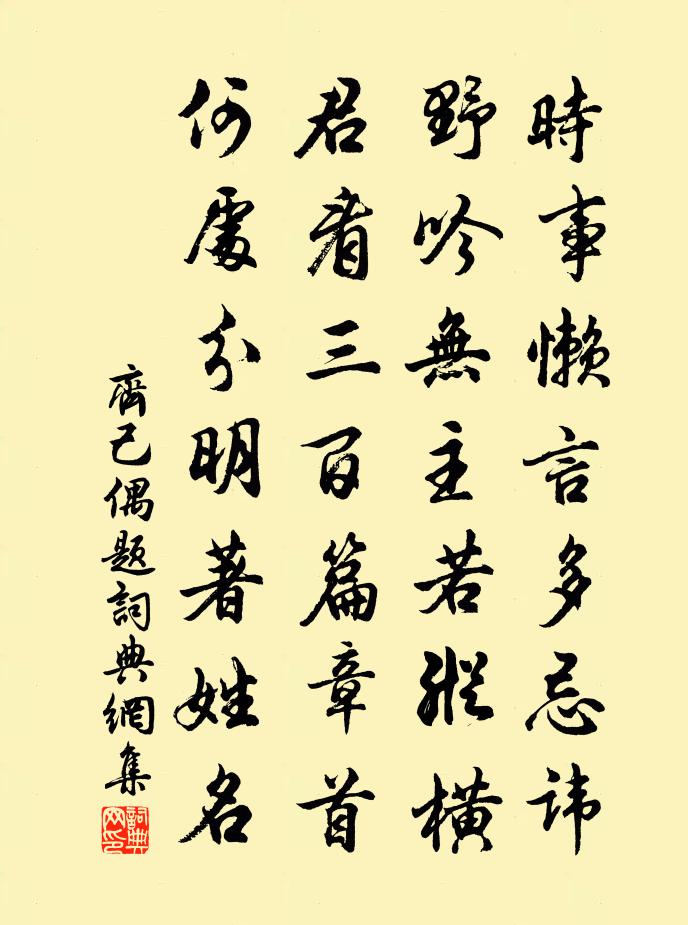 時事懶言多忌諱
野吟無主若縱橫
君看三百篇章首
何處分明著姓名
齊己偶題詞典網集
詞典网印